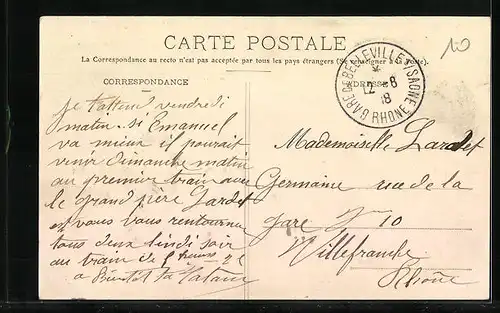 CARTE POSTALE
La Correspondance au recto n'est pas acceptée par tous les pays étrangers (Se renseigner à la Poste).
CORRESPONDANCE
ADRESSE
GARE DE BELLEVILLE S/SAÔNE
12-8
18
RHONE
10
je t'attend vendredi
matin. si Emanuel
va mieux il pourait
venir Dimanche matin
au premier train avec
le grand père Lardet
et vous vous
tous deux lundi soir
au train de
a Bientot ta
Mademoiselle Lardet
Germaine rue de la
gare N 10
Villefranche
Rhône